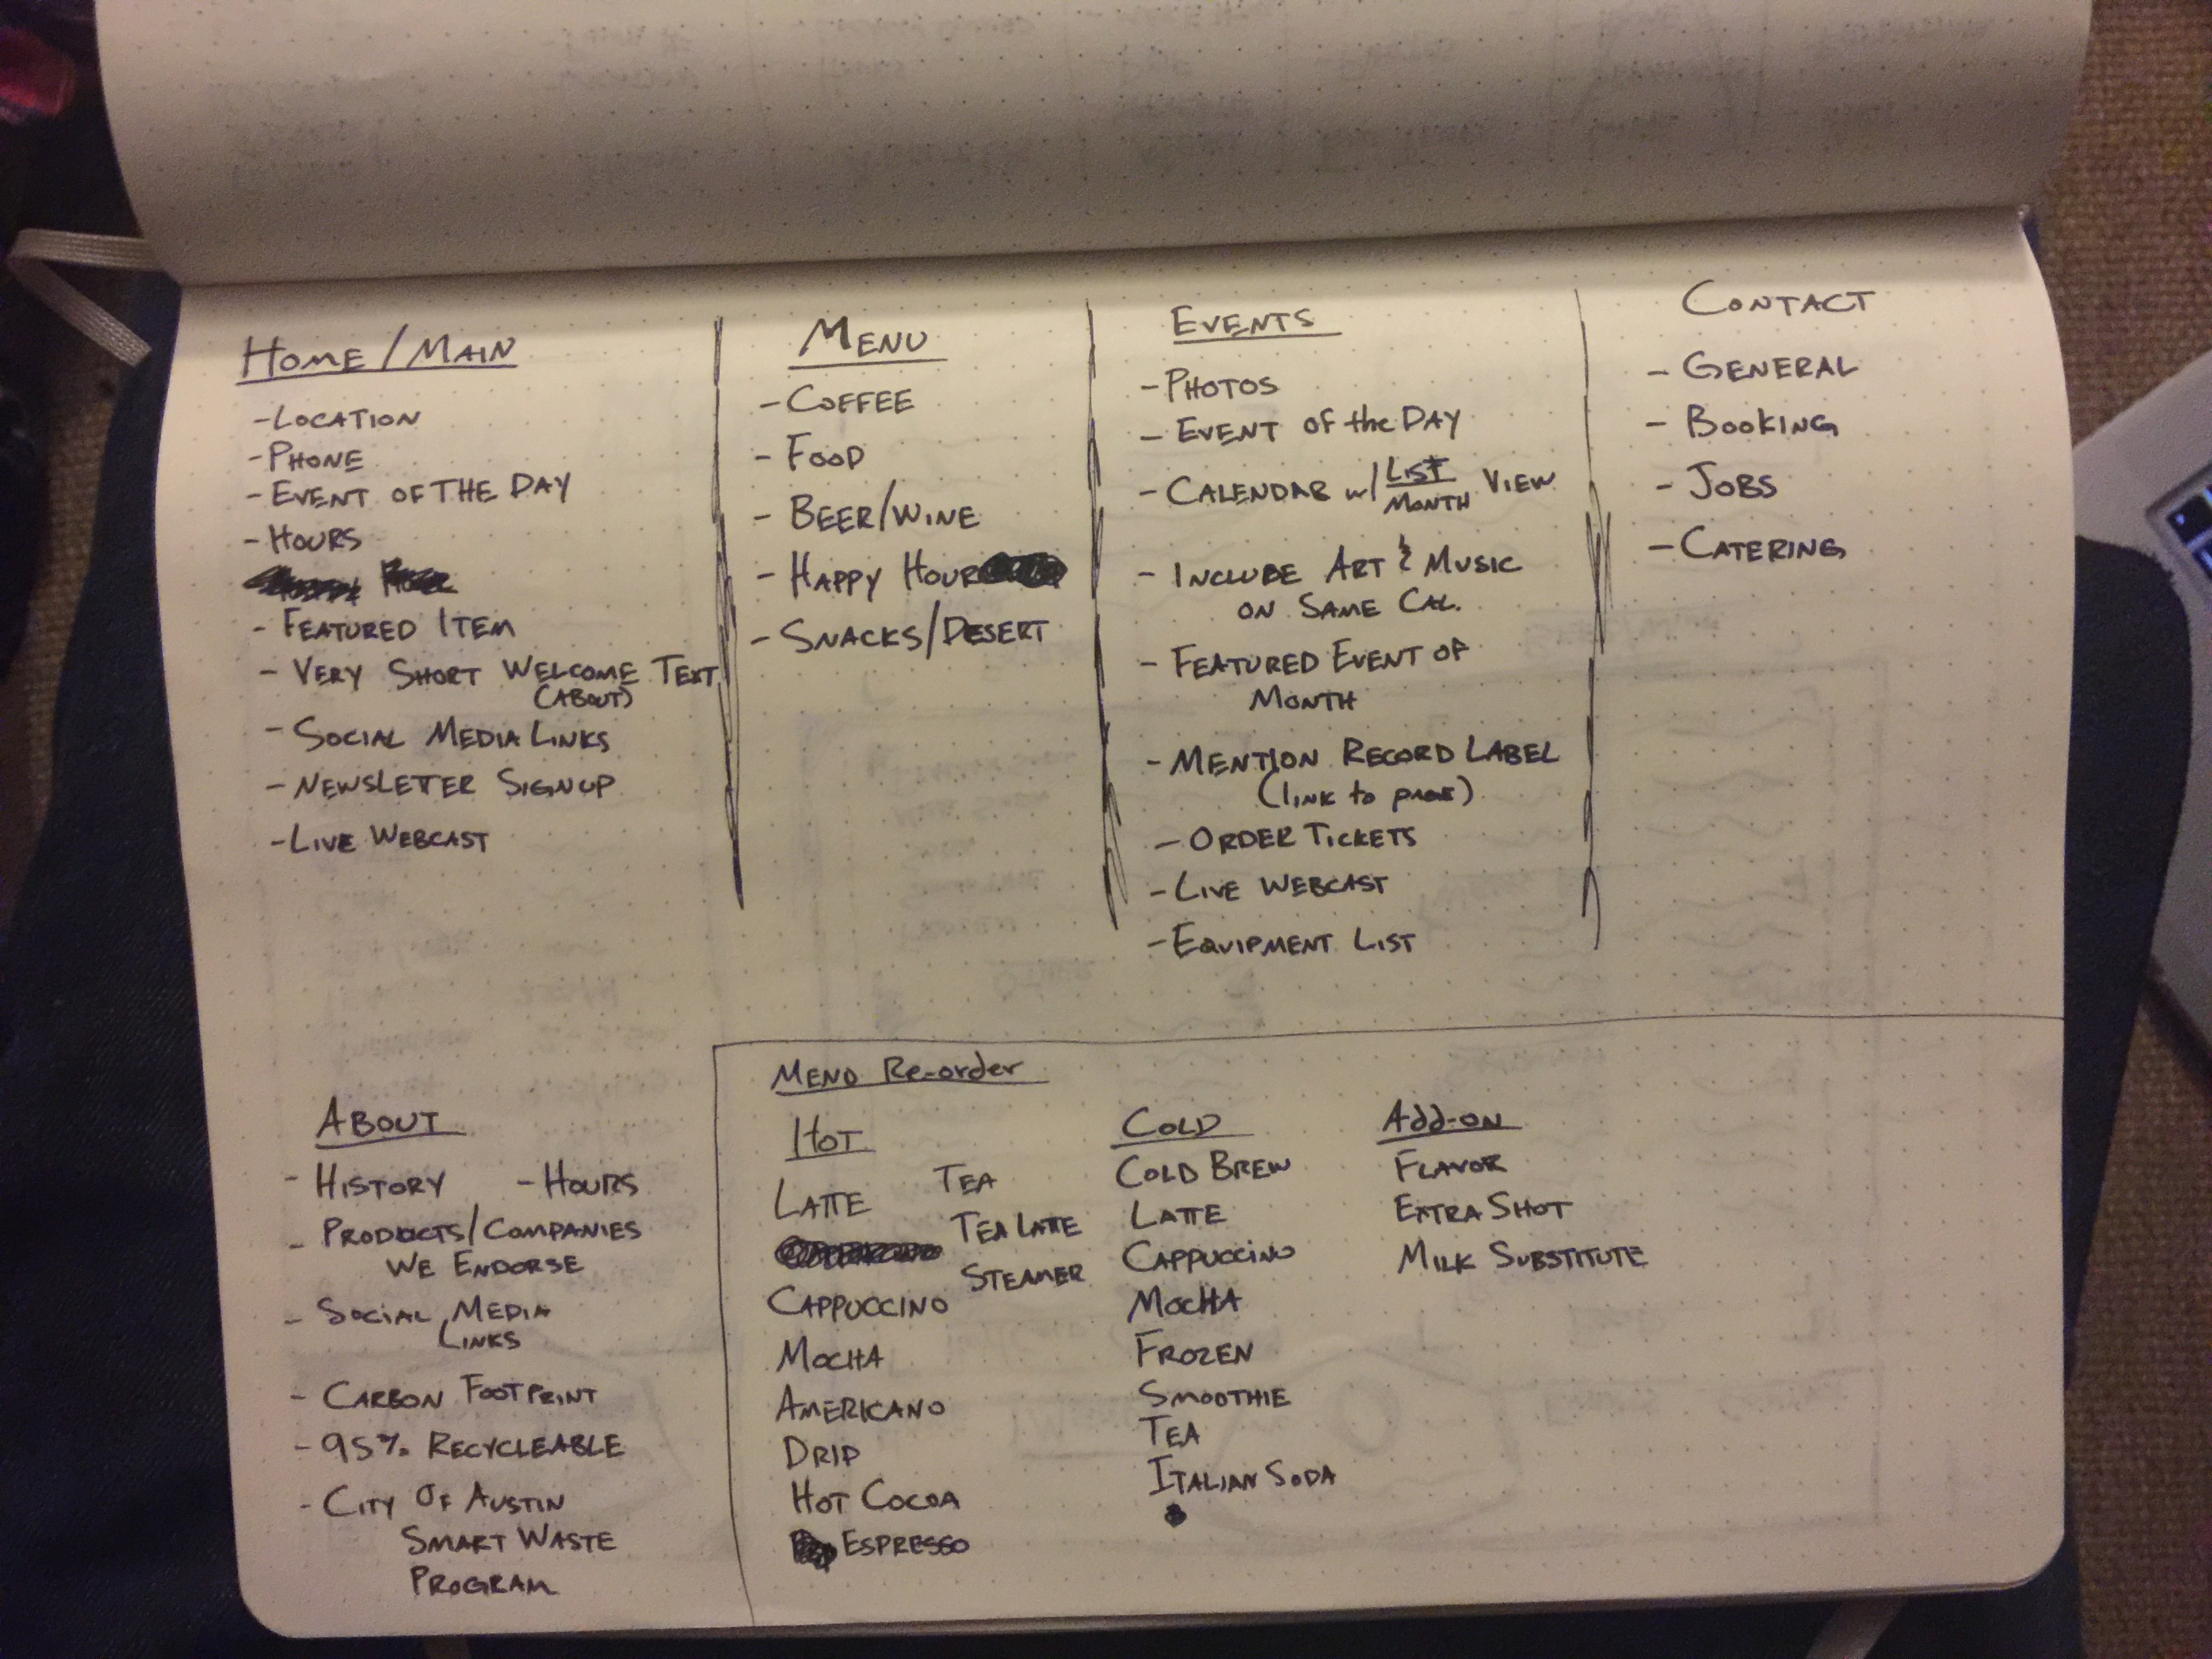 HOME/MAIN
-LOCATION
-PHONE
-EVENT OF THE DAY
-HOURS
- FEATURED ITEM
- VERY SHORT WELCOME TEXT
(ABOUT)
- SOCIAL MEDIA LINKS
- NEWSLETTER SIGNUP
-LIVE WEBCAST
MENU
- COFFEE
- FOOD
- BEER/WINE
- HAPPY HOUR
- SNACKS/DESERT
EVENTS
-PHOTOS
- EVENT OF the DAY
- CALENDAR w/ LIST VIEW
MONTH
- INCLUDE ART & MUSIC
ON SAME CAL.
- FEATURED EVENT OF
MONTH
- MENTION RECORD LABEL
(link to page)
- ORDER TICKETS
- LIVE WEBCAST
- EQUIPMENT LIST
CONTACT
- GENERAL
- BOOKING
- JOBS
- CATERING
ABOUT
- HISTORY - HOURS
- PRODUCTS/COMPANIES
WE ENDORSE
- SOCIAL MEDIA
LINKS
- CARBON FOOTPRINT
- 95% RECYCLEABLE
- CITY OF AUSTIN
SMART WASTE
PROGRAM
MENU Re-order
HOT
LATTE
CAPPUCCINO
MOCHA
AMERICANO
DRIP
HOT COCOA
ESPRESSO
TEA
TEA LATTE
STEAMER
COLD
COLD BREW
LATTE
CAPPUCCINO
MOCHA
FROZEN
SMOOTHIE
TEA
ITALIAN SODA
Add-on
FLAVOR
EXTRA SHOT
MILK SUBSTITUTE